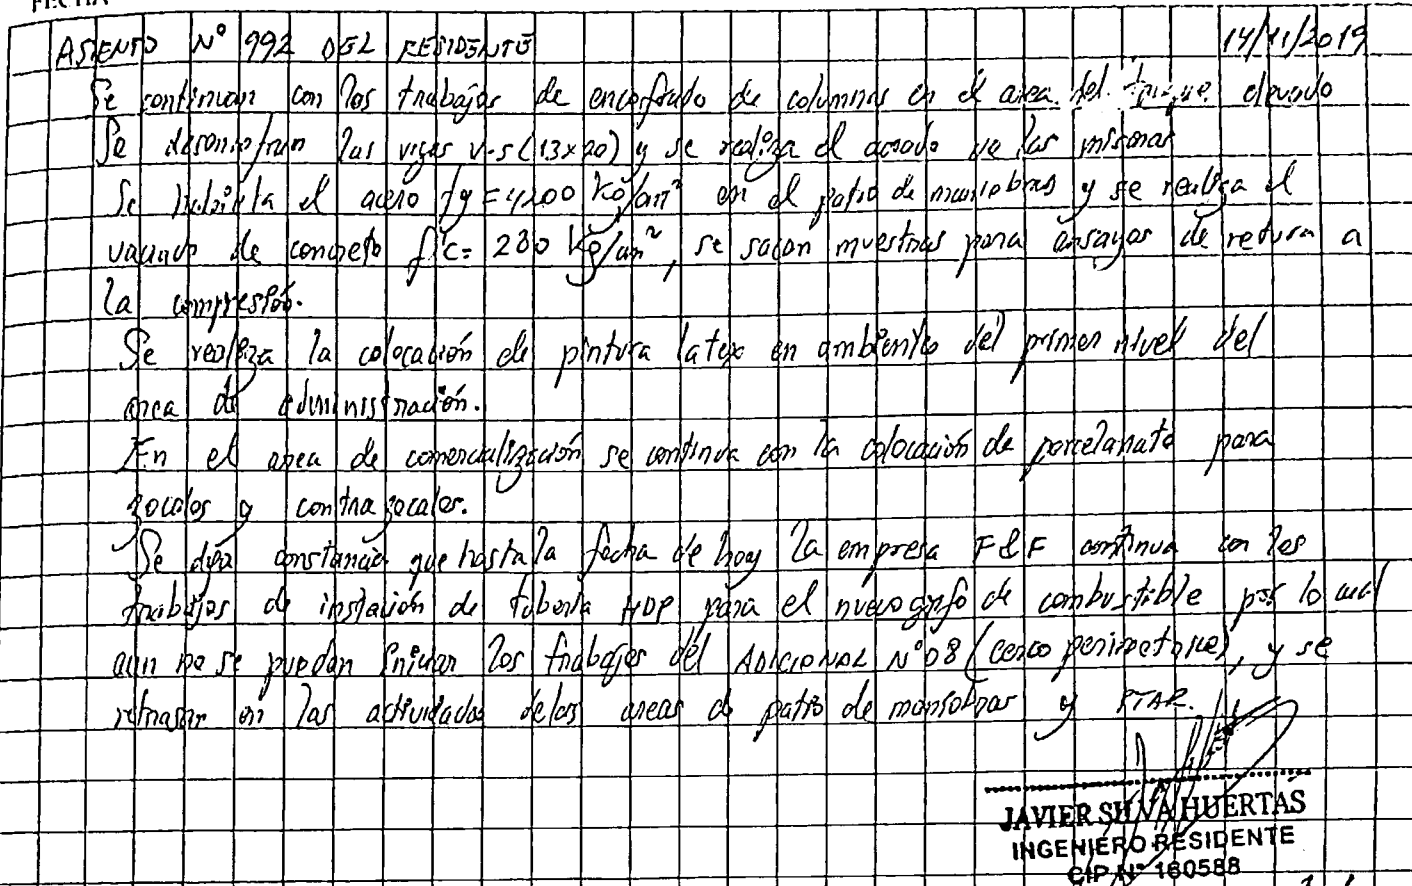 FECHA
ASIENTO N° 992 DEL RESIDENTE 14/11/2019
Se continuan con los trabajos de encofrado de columnas en el area del tanque elevado
Se desencofran las vigas v-s (13x20) y se realiza el acabado de las mismas
Se habilita el acero fy = 4200 kg/cm² en el patio de maniobras y se realiza el
vaciado de concreto f'c = 280 kg/cm², se sacan muestras para ensayos de rotura a
la compresión.
Se realiza la colocación de pintura latex en ambientes del primer nivel del
area de administración.
En el area de comercialización se continua con la colocación de porcelanato para
zocalos y contrazocalos.
Se deja constancia que hasta la fecha de hoy la empresa F&F continua con los
trabajos de instación de tuberia HDP para el nuevo grifo de combustible por lo cual
aun no se puedan iniciar los trabajos del ADICIONAL N°08 (cerco perimetrico), y se
retrasan en las actividades de las areas de patio de maniobras y PTAR.
JAVIER SILVA HUERTAS
INGENIERO RESIDENTE
CIP N° 160588